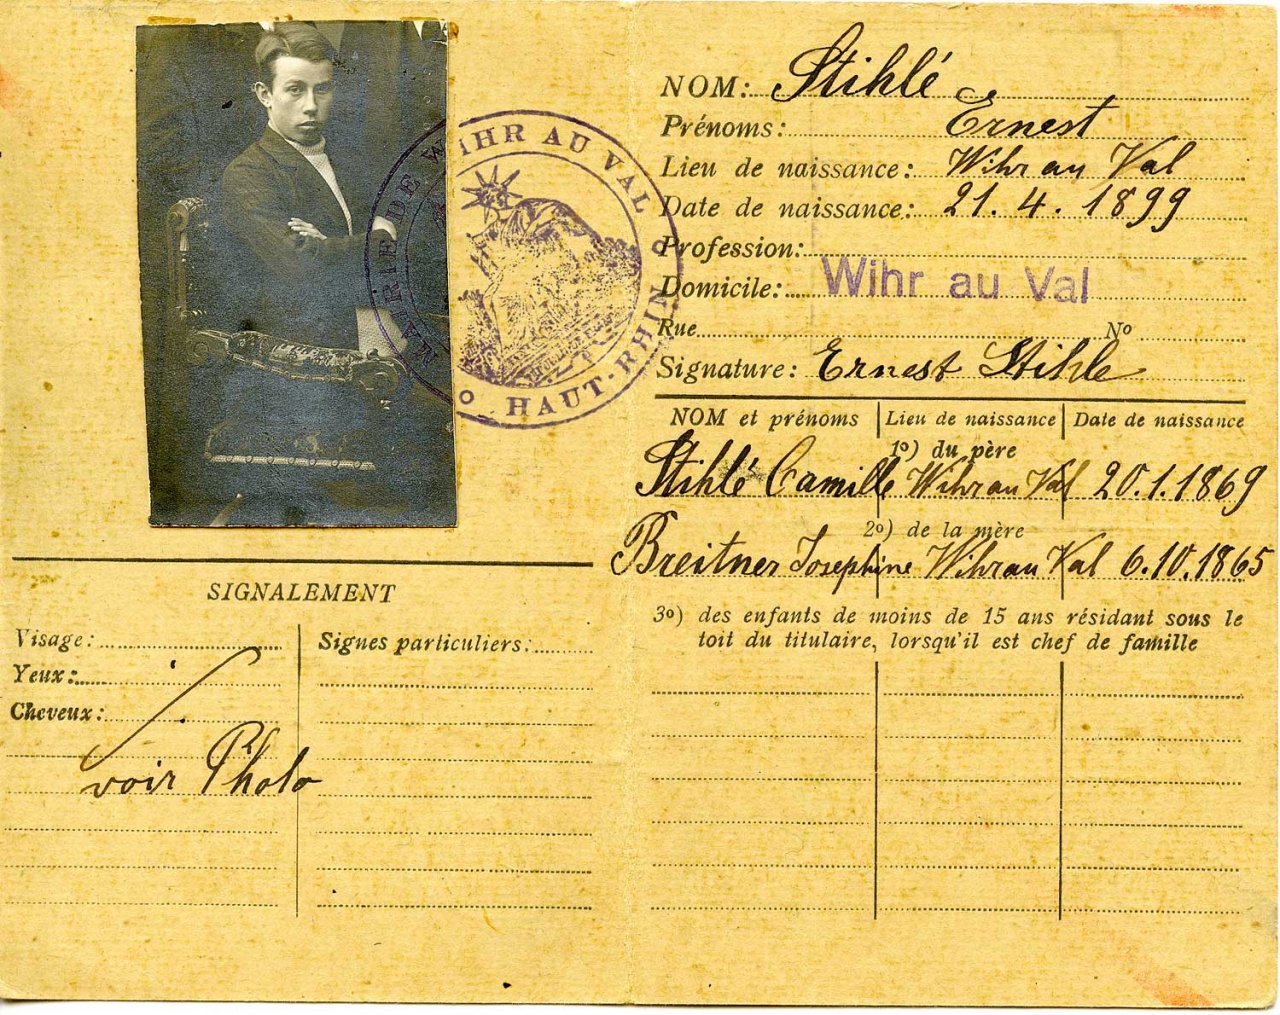 MAIRIE DE WIHR AU VAL
HAUT-RHIN
SIGNALEMENT
Visage:
Yeux:
Cheveux:
voir Photo
Signes particuliers:
NOM: Stihlé
Prénoms: Ernest
Lieu de naissance: Wihr au Val
Date de naissance: 21. 4. 1899
Profession:
Domicile: Wihr au Val
Rue Nº
Signature: Ernest Stihle
NOM et prénoms Lieu de naissance Date de naissance
1º) du père
Stihlé Camille Wihr au Val 20.1.1869
2º) de la mère
Breitner Josephine Wihr au Val 6.10.1865
3º) des enfants de moins de 15 ans résidant sous le
toit du titulaire, lorsqu'il est chef de famille